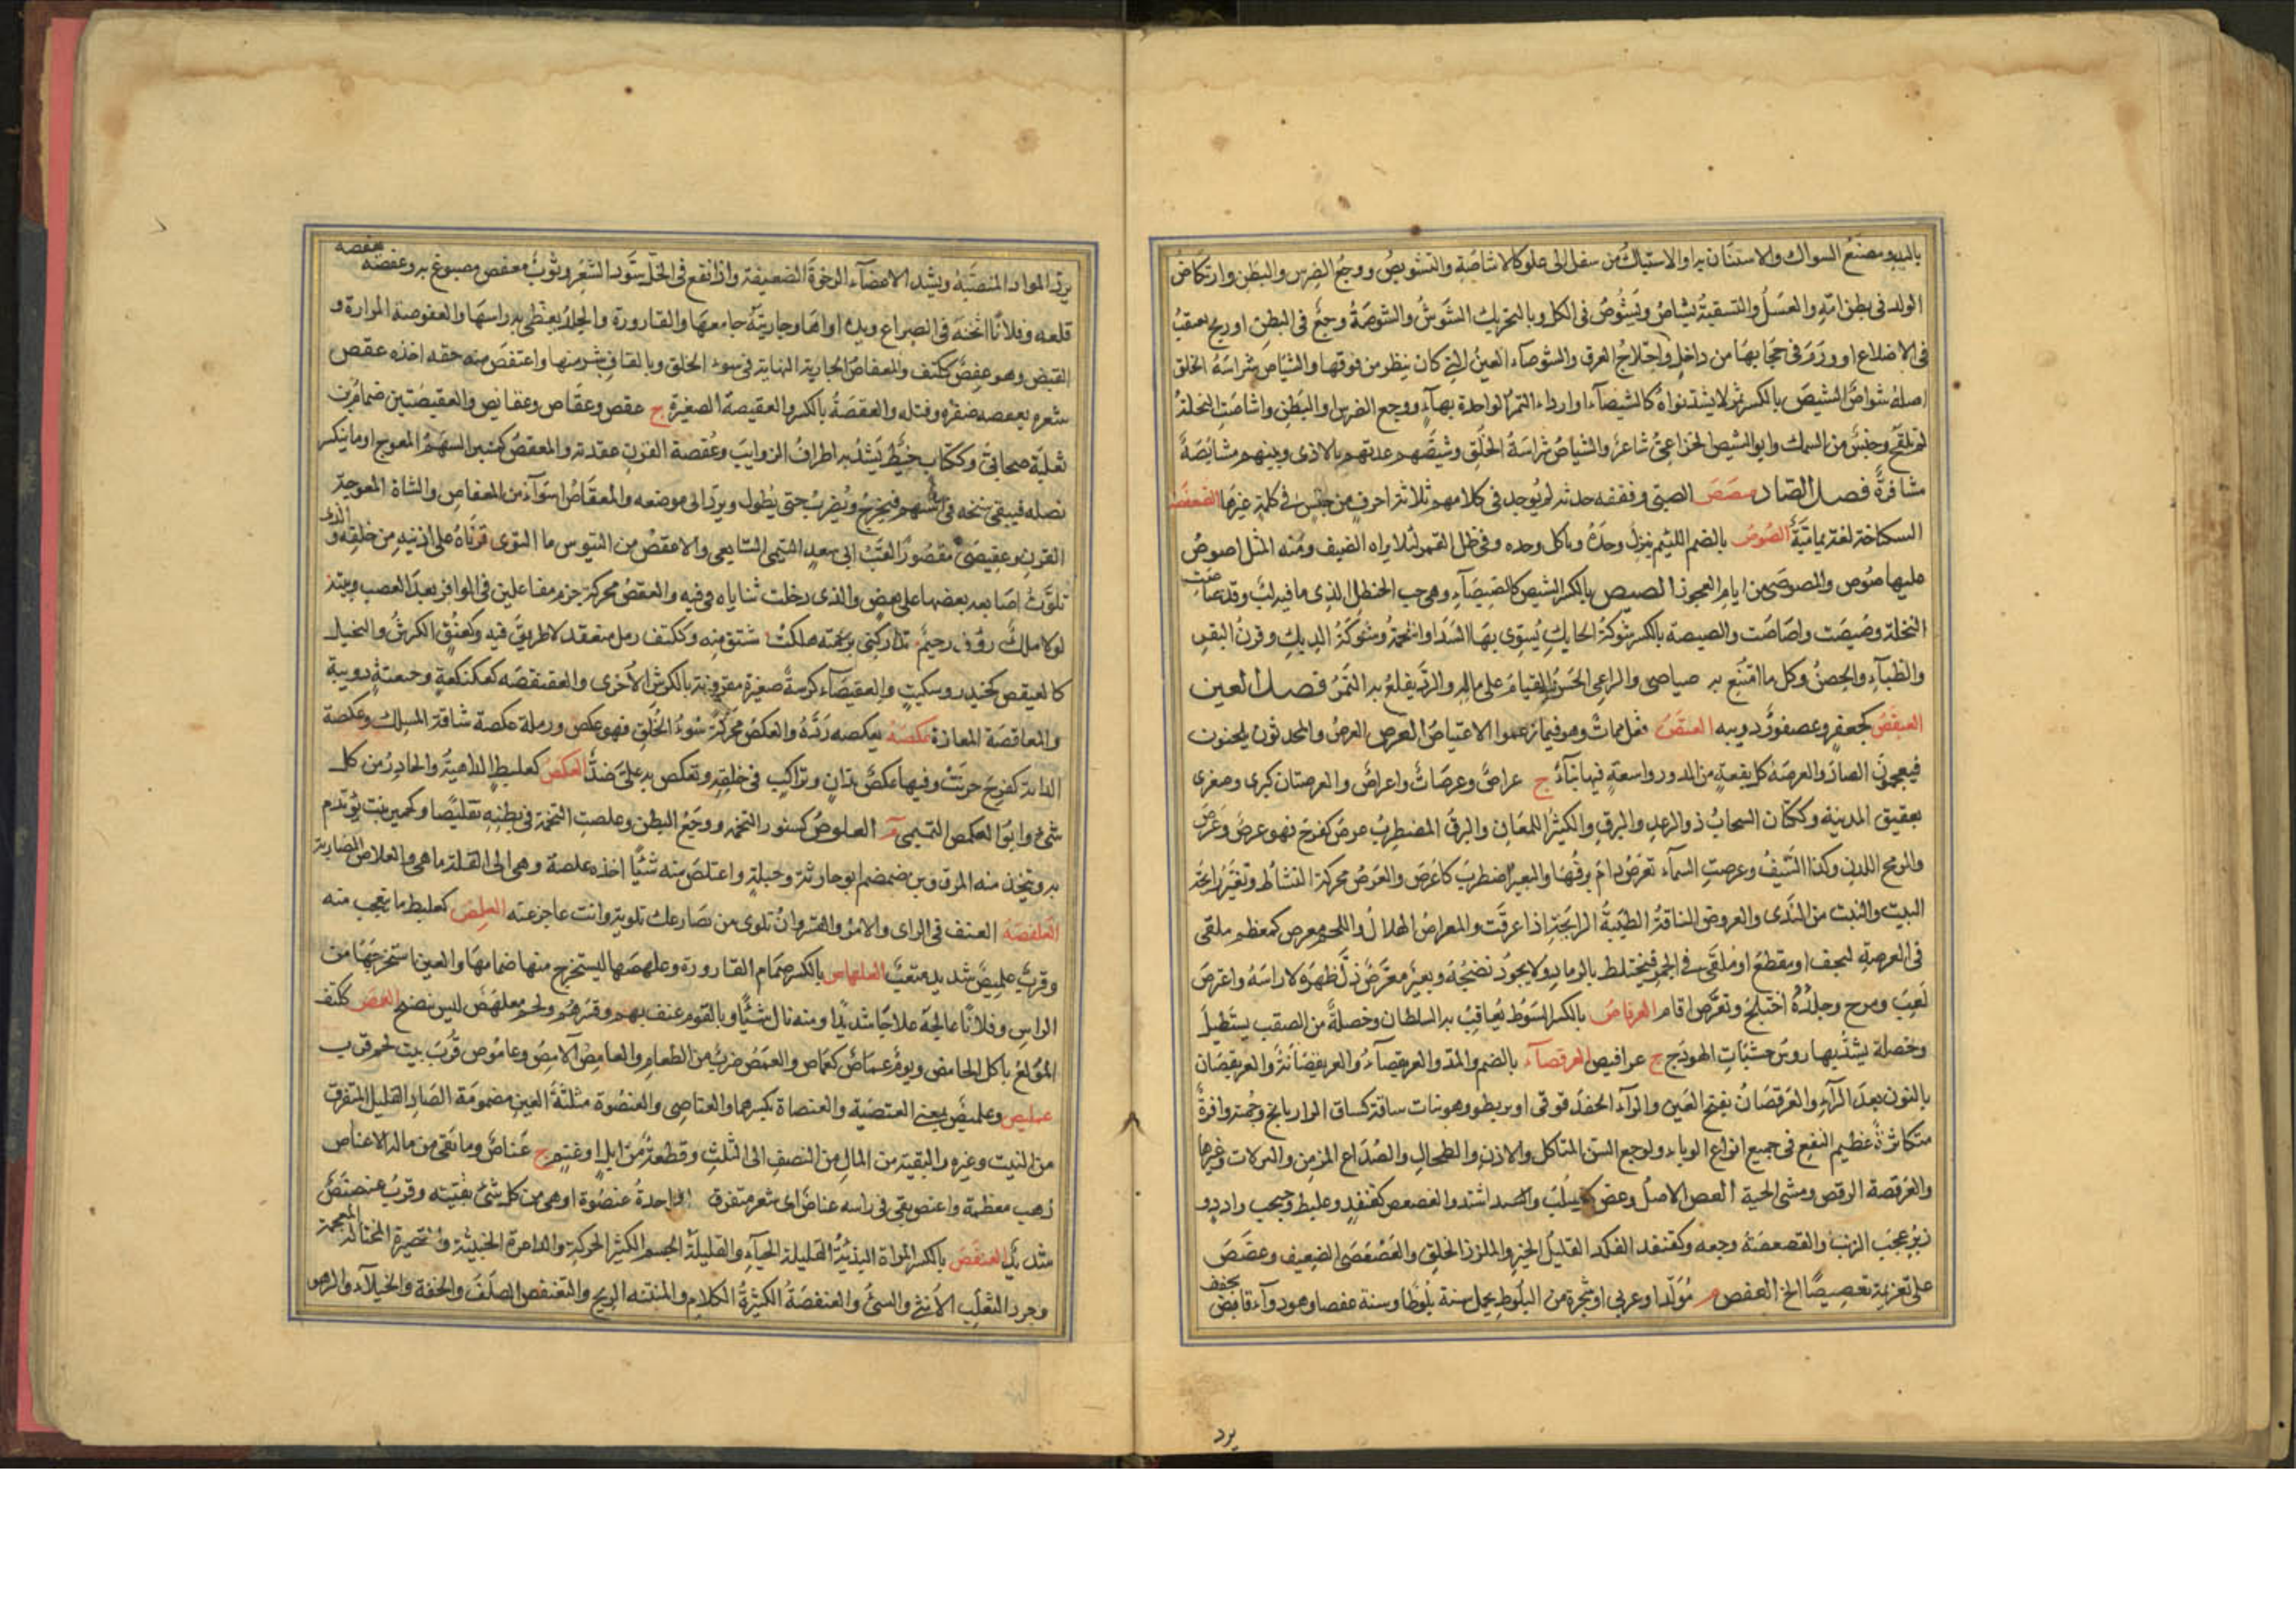 باليد ومضغ السواك والاستنان به او الاستياك من سفل الى علو كالاشاصة والتشويص ووجع الضرس والبطن وارتكاض
الولد فى بطن امه والغسل والتنقية يشاص ويشوص فى الكل وبالتحريك الشوش والشوصة وجع فى البطن او ريح تعتقب
فى الاضلاع او ورم فى حجابها من داخل واختلاج العرق والشوصاء العين التى كان ينظر من فوقها والشياص شراسة الخلق
اصله شواص الشيص بالكسر تمر لا يشتد نواه كالشيصاء او اردء التمر الواحدة بهاء ووجع الضرس او البطن واشاصت النخلة
لم تلقح وجنس من السمك وابو الشيص الخزاعى شاعر والشياص شراسة الخلق وشيصهم عذبهم بالاذى وبينهم مشايصة
منافرة فصل الصاد صصص الصبى وققفه حدثه لم يوجد فى كلامهم ثلاثة احرف من جنس فى كلمة غيرها الصعفصة
السكباجة لغة يمامية الصوص بالضم اللئيم ينزل وحده وياكل وحده وفى ظل القمر لئلا يراه الضيف ومنه المثل اصوص
عليها صوص والصوصى من ايام العجوز الصيص بالكسر الشيص كالصيصاء وهى حب الحنظل الذى ما فيه لب وقد صاصت
النخلة وصيصت واصاصت والصيصة بالكسر شوكة الحايك يسوى بها السدا واللحمة وشوكة الديك وقرن البقر
والظباء والحصن وكل ما امتنع به صياصى والراعى الحسن القيام على ماله والود يقلع به التمر فصل العين
العبقص كجعفر وعصفور دويبه العنص فعل ممات وهو فيما زعموا الاعتياص العرص العرص والمحدثون يلحنون
فيعجمون الصاد والعرصة كل بقعة من الدور واسعة فيها بناء ج عراص وعرصات واعراص والعرصتان كبرى وصغرى
بعقيق المدينة وككتان السحاب ذو الرعد والبرق والكثير اللمعان والبرق المضطرب عرص كفرح فهو عرص وعراص
والرمح اللدن وكذا السيف وعرصت السماء تعرص دام برقها والبعير اضطرب كاعرص والعرص محركة النشاط وتغير رايحة
البيت والنبت من الندى والعروص الناقة الطيبة الرايحة اذا عرقت والمعراص الهلال واللحم معرص كمعظم ملقى
فى العرصة ليجف او مقطع او ملقى فى الجمر فيختلط بالرماد ولا يجود نضجه وبعير معرص ذل ظهره لا راسه واعترص
لعب ومرح وجلده اختلج وتعرص اقام العرفاص بالكسر السوط يعاقب به السلطان وخصلة من العقب يستطيل
وخصلة يشد بها روس خشبات الهودج ج عرافيص العرقصاء بالضم والمد والعريقصاء والعريقصانة والعريقصان
بالنون بعد الراء والعرقصان بفتح العين والراء الحندقوقى او بربطو وهو نبات ساقه كساق الرازيانج وجمته وافرة
متكاثرة عظيم النفع فى جميع انواع الوباء ولوجع السن المتاكل والاذن والطحال والصداع المزمن والنزلات وغيرها
والعرقصة الرقص ومشى الحية العص الاصل وعص كيسلب واشتد والعصعص كقنفد وعلبط وحبحب وادد و
زبير عجب الذنب والعصعصة وجعه وكقنفد النكد القليل الخير والملزز الخلق والعصفصى الضعيف وعصص
على غريمه تعصيصا الخ العفص م مولد او عربى او شجرة من البلوط يحمل سنة بلوطا وسنة عفصا وهو دواء قابض مجفف
يرد
يرد المواد المنصبة ويشد الاعضاء الرخوة الضعيفة واذا نقع فى الخل سود الشعر وثوب معفص مصبوغ به وعفصه يعفصه
قلعه وفلانا اثخنه فى الصراع ويده لواها وجاريته جامعها والقارورة والجلد يغطى به راسها والعفوصة المرارة و
القبض وهو عفص ككتف والمعفاص الجارية النهاية فى سوء الخلق وبالقاف شر منها واعتفص منه حقه اخذه عقص
شعره يعقصه ضفره وفتله والعقصة بالكسر والعقيصة الصغيرة ج عقص وعقاص وعقايص والعقيصتين ضمام بن
ثعلبة صحابى وككتاب خيط يشد به اطراف الذوايب وعقصة القرن عقدته والمعقص كمنبر السهم المعوج او ما ينكسر
نصله فيبقى سنخه فى السهم فيخرج ويضرب حتى يطول ويرد الى موضعه والمعقاص اسوا من المعفاص والشاة المعوجة
القرن وعقيصى مقصورا لقب ابى سعد التيمى التابعى والاعقص من التيوس ما التوى قرناه على اذنيه من خلفه والذى
تلوت اصابعه بعضها على بعض والذى دخلت ثناياه فى فيه والعقص محركة خرم مفاعلين فى الوافر بعد العصب وبيته
لولا ملك رؤف رحيم تداركنى برحمته هلكت شتق منه وككتف رمل متعقد لا طريق فيه وكعنق الكرش والبخيل
كالعيقص كحيدر وسكيت والعقيصاء كرسة صغيرة مقرونة بالكرش الاخرى والعقنقصه كعكنكعة وخبعثة دويبة
والمعاقصة المعازة عكصه يعكصه رده والعكص محركة سوء الخلق فهو عكص ورملة عكصة شاقة المسلك وعكصة
الدابة كفرح حرنت وفيها عكص تدان وتراكب فى خلقه وتعكص به على ضن العكمص كعلبط الداهية والحادر من كل
شى وابو العكمص التميمى م العلوص كسنور التخمه ووجع البطن وعلصت التخمة فى بطنه تعليصا وكحمير نبت يؤتدم
به ويتخذ منه المرق وبن ضمضم ابو حارثة وجبلة واعتلص منه شيئا اخذه علصة وهى الى القلة ما هى والعلاص المضاربة
العلفصة العنف فى الراى والامر والقسر وان تلوى من تصارعك تلوية وانت عاجز عنه العلمص كعلبط ما يعجب منه
وقرب علميص شديد متعب العلهاص بالكسر صمام القارورة وعلهصها ليستخرج منها صمامها والعين استخرجها من
الراس وفلانا عالجه علاجا شديدا ومنه نال شيئا وبالقوم عنف بهم وقسرهم ولحم معلهص ليس بنضج العمص ككتف
المولع باكل الحامض ويوم عماص كعماس والعمص ضرب من الطعام والعامص الآمص وعاموص قرب بيت لحم قرب
عمليص وعلميص بمعنى العنصية والعنصاة بكسرهما والعناصى والعنصوة مثلثة العين مضمومة الصاد القليل المتفرق
من النبت وغيره والبقية من المال من النصف الى الثلث وقطعة من ابل او غنم ج عناص وما بقى من ماله الا عناص
ذهب معظمه واعنص بقى فى راسه عناص اى شعر متفرق الواحدة عنصوة او هى من كل شى بقيته وقرب عنصنص
شديد العنفص بالكسر المراة البذية القليلة الحياء والقليلة الجسم الكثير الحركة والداعرة الخبيثة والقصيرة المختالة المعجبة
وجرو الثعلب الانثى والسى والعنفصة الكثيرة الكلام والمنتنه الريح والتعنفص الصلف والخفة والخيلاء والزهو